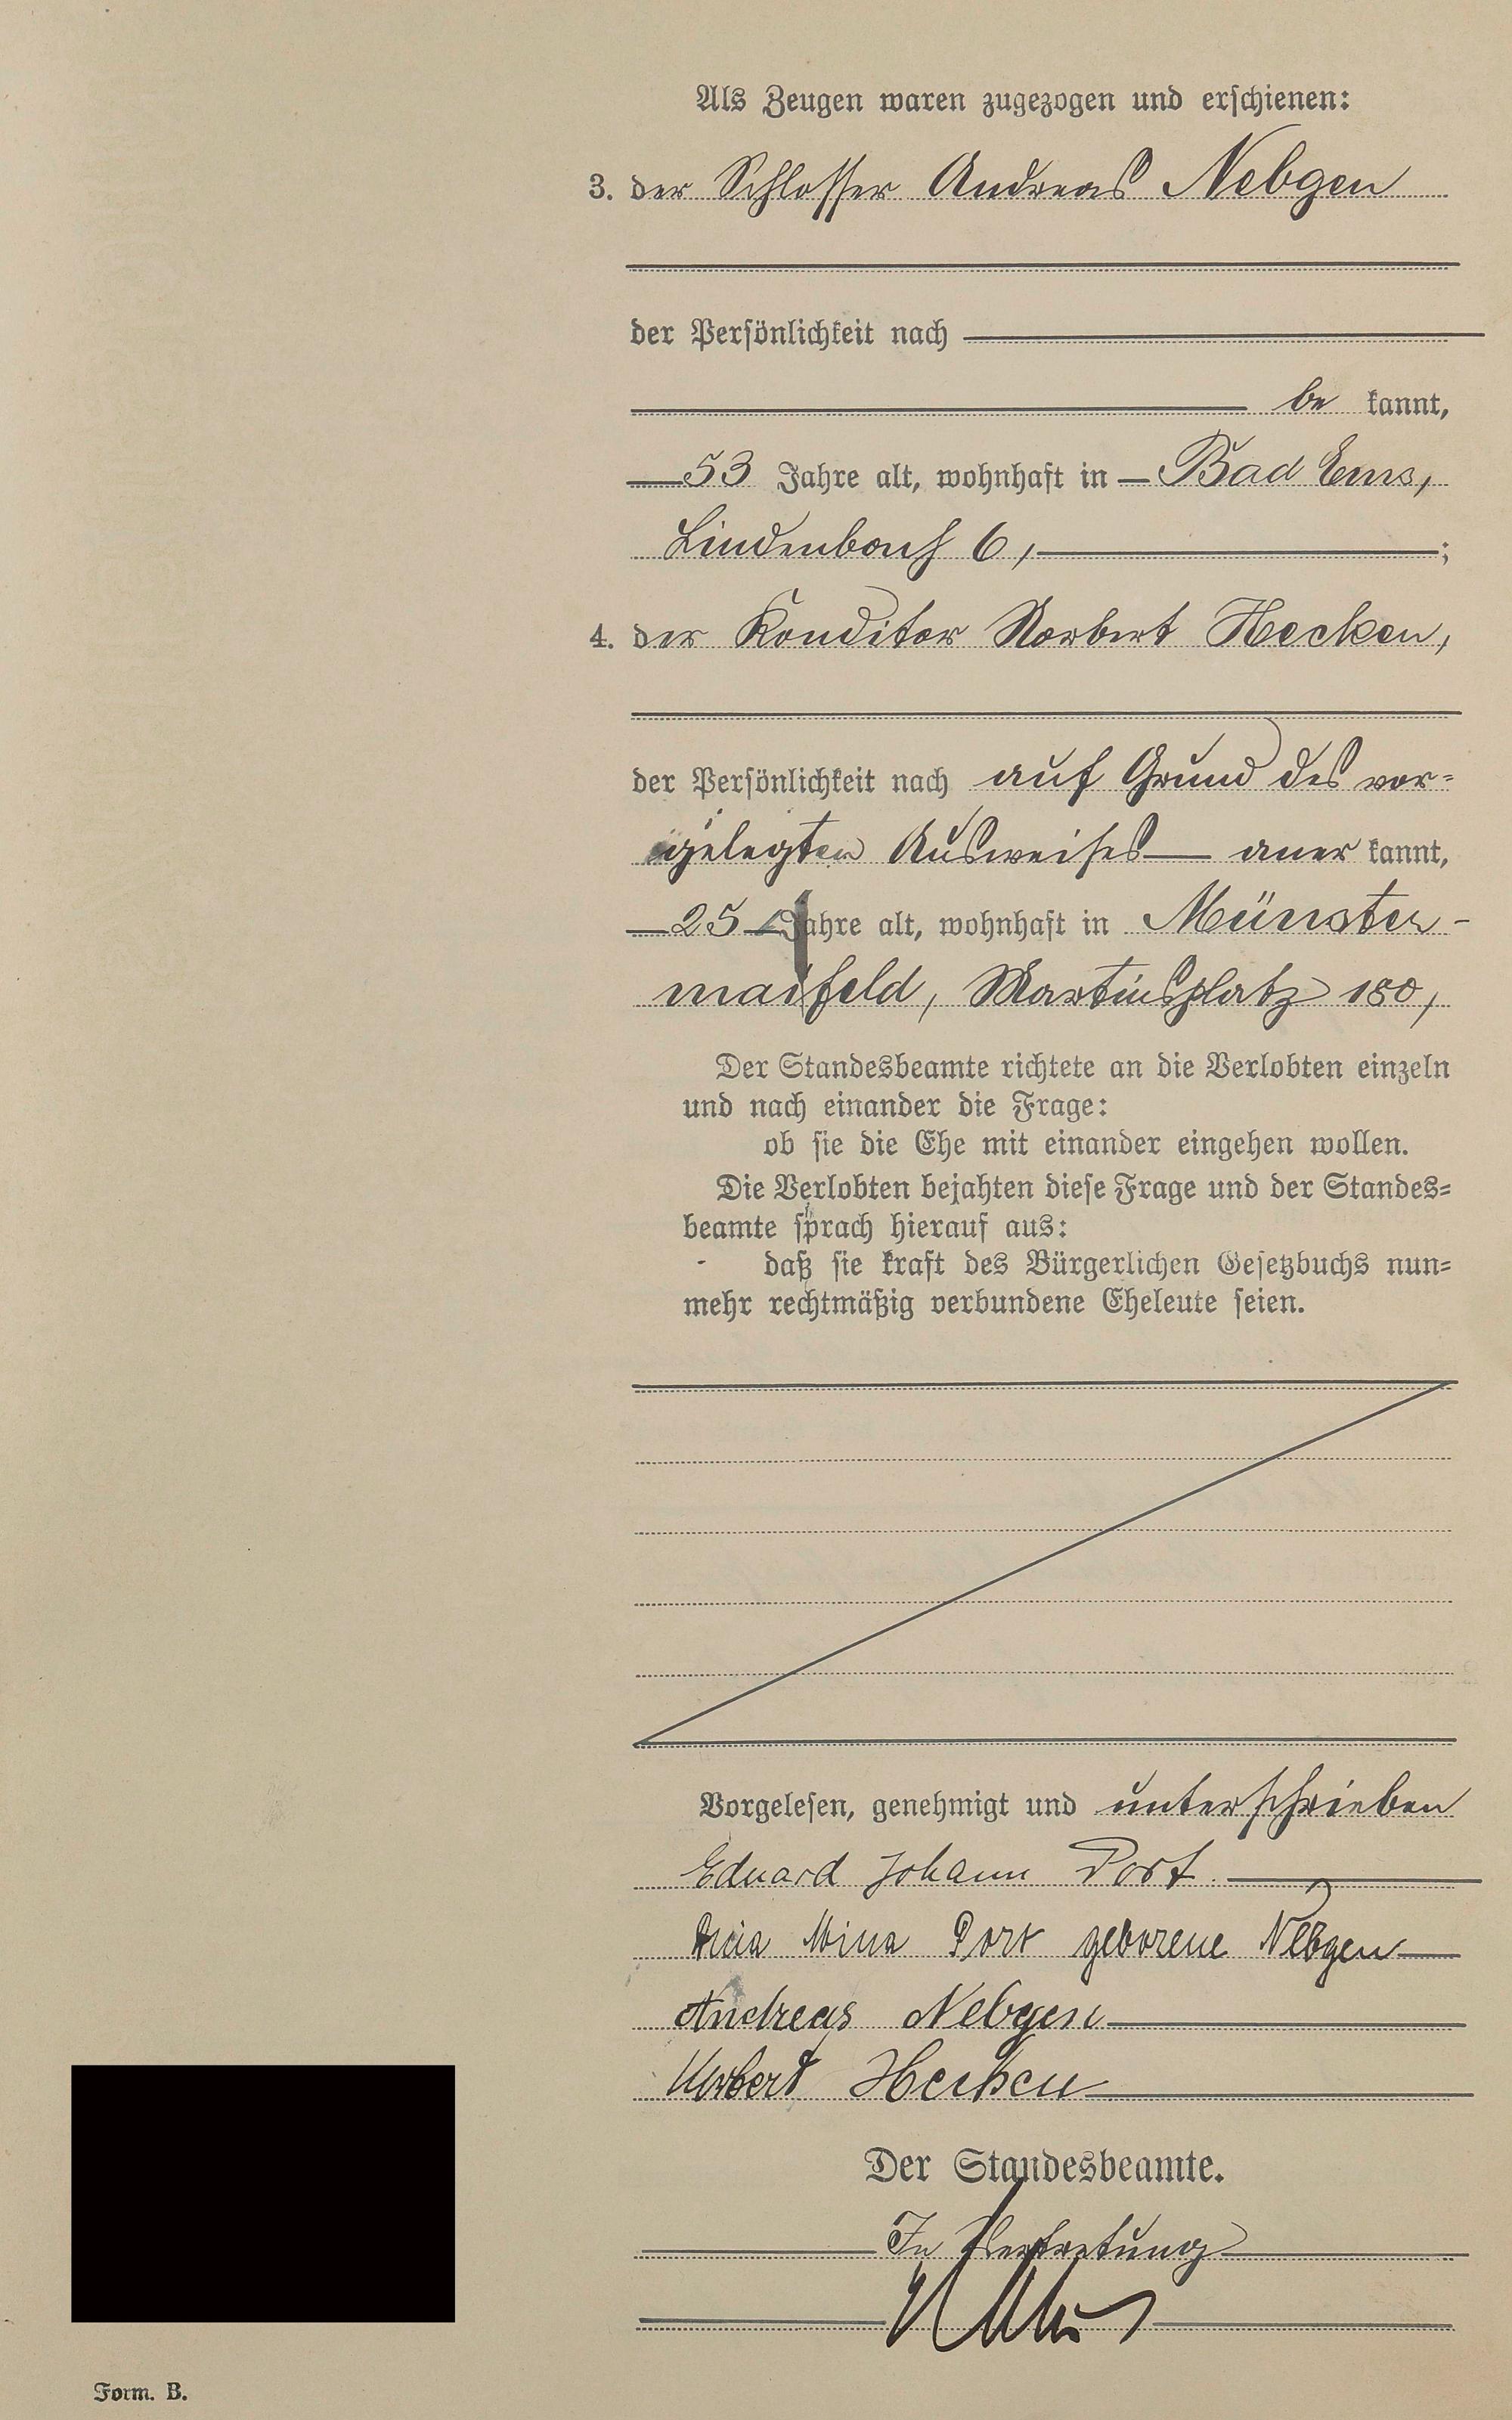 Als Zeugen waren zugezogen und erschienen:
3. der Schlosser Andreas Nebgen
der Persönlichkeit nach
be kannt,
53 Jahre alt, wohnhaft in Bad Ems,
Lindenbach 6, ;
4. der Konditor Norbert Hecken,
der Persönlichkeit nach auf Grund des vor=
gelegten Ausweises aner kannt,
25 Jahre alt, wohnhaft in Münster-
maifeld, Martinsplatz 180,
Der Standesbeamte richtete an die Verlobten einzeln
und nach einander die Frage:
ob sie die Ehe mit einander eingehen wollen.
Die Verlobten bejahten diese Frage und der Standes=
beamte sprach hierauf aus:
daß sie kraft des Bürgerlichen Gesetzbuchs nun=
mehr rechtmäßig verbundene Eheleute seien.
Vorgelesen, genehmigt und unterschrieben
Eduard Johann Port
Mina Port geborene Nebgen
Andreas Nebgen
Norbert Hecken
Der Standesbeamte.
In Vertretung
Form. B.